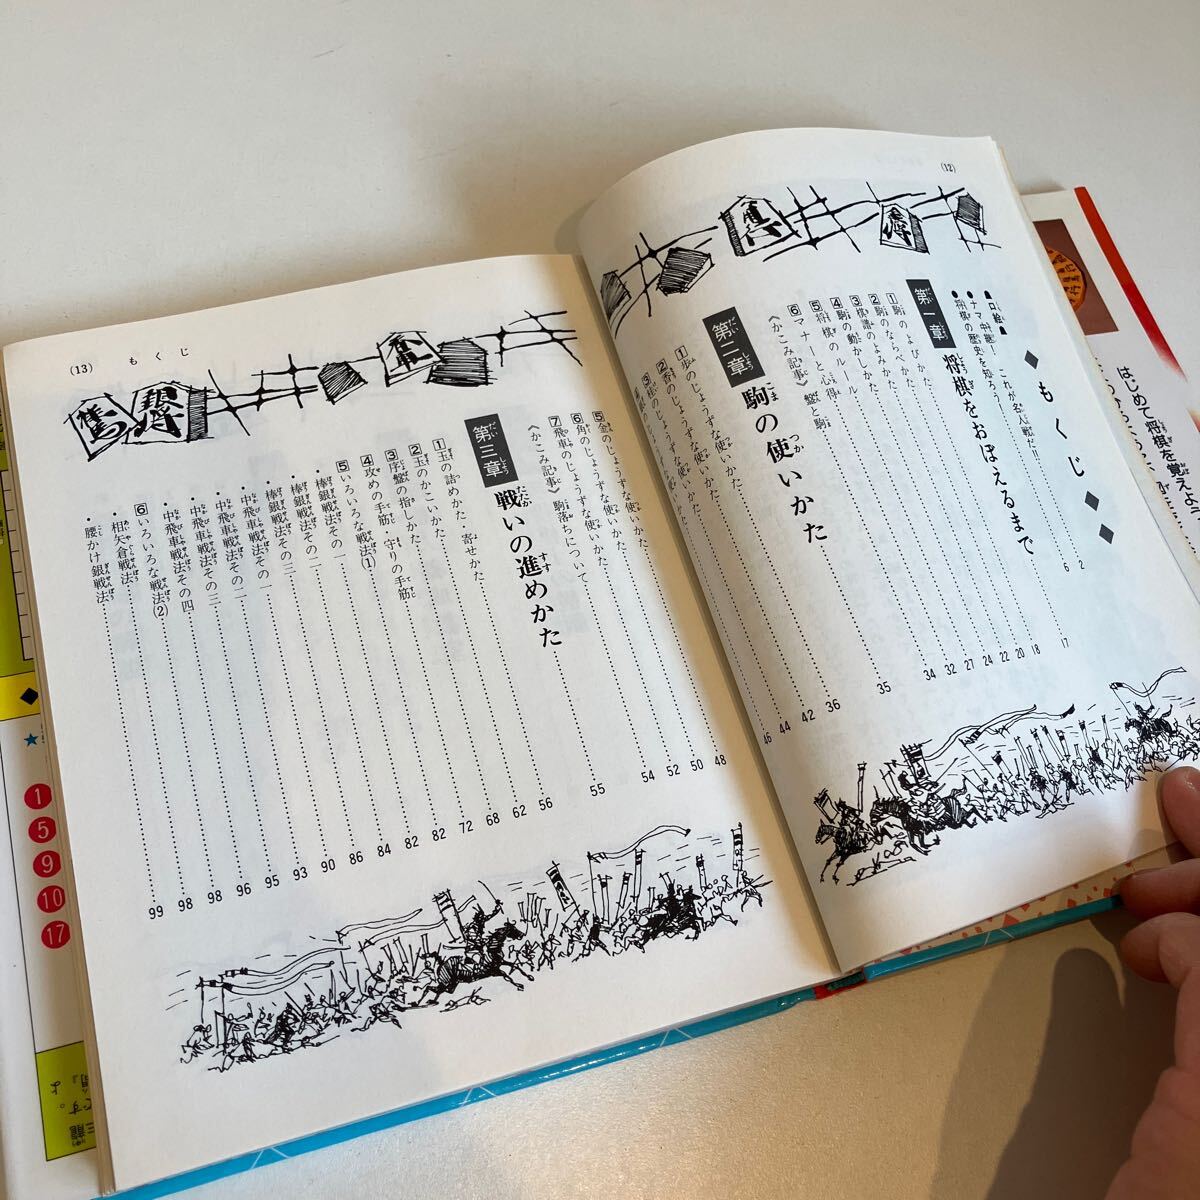 (12)
◆もくじ◆◆
▲口絵▲
●ナマ中継！ これが名人戦だ!!…2
●将棋の歴史を知ろう!…6
第一章 将棋をおぼえるまで…17
1駒のよびかた…18
2駒のならべかた…20
3棋譜のよみかた…22
4駒の動かしかた…24
5将棋のルール…27
6マナーと心得…32
《かこみ記事》 盤と駒…34
第二章 駒の使いかた…35
1歩のじょうずな使いかた…36
2香のじょうずな使いかた…42
3桂のじょうずな使いかた…44
46
(13) もくじ
5金のじょうずな使いかた…48
6角のじょうずな使いかた…50
7飛車のじょうずな使いかた…52
《かこみ記事》 駒落ちについて…54
第三章 戦いの進めかた…55
1玉の詰めかた・寄せかた…56
2玉のかこいかた…62
3序盤の指しかた…68
4攻めの手筋・守りの手筋…72
5いろいろな戦法(1)…82
・棒銀戦法その一…82
・棒銀戦法その二…84
・棒銀戦法その三…86
・中飛車戦法その一…90
・中飛車戦法その二…93
・中飛車戦法その三…95
・中飛車戦法その四…96
6いろいろな戦法(2)…98
・相矢倉戦法…98
・腰かけ銀戦法…99
はじめて将棋を覚えよ
1
5
9
10
17